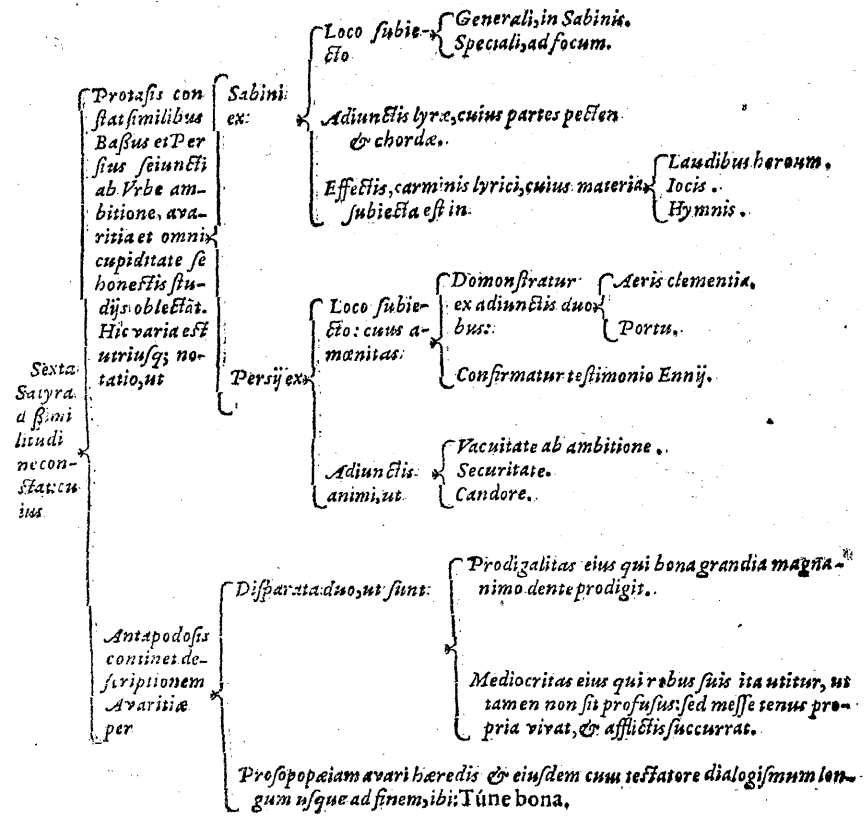 Sexta
Satyra
dißimi
litudi
ne con-
stat: cu
ius
Protasis con
stat similibus
Baßus et Per
sius seiuncti
ab Vrbe am-
bitione, ava-
ritia et omni
cupiditate se
honestis stu-
dijs oblectāt.
Hic varia est
utriusq; no-
tatio, ut
Sabini
ex:
Loco subie-
cto
Generali, in Sabinis.
Speciali, ad focum.
Adiunctis lyræ, cuius partes pecten
& chordæ.
Effectis, carminis lyrici, cuius materia
subiecta est in
Laudibus heroum.
Iocis.
Hymnis.
Persij ex
Loco subie-
cto: cuus a-
mœnitas:
Domonstratur
ex adiunctis duo
bus:
Aeris clementia.
Portu.
Confirmatur testimonio Ennij.
Adiunctis
animi, ut
Vacuitate ab ambitione.
Securitate.
Candore.
Antapodosis
continet de-
scriptionem
Avaritiæ
per
Disparata duo, ut sunt:
Prodigalitas eius qui bona grandia magna-
nimo dente prodigit.
Mediocritas eius qui rebus suis ita utitur, ut
tamen non sit profusus: sed messe tenus pro-
pria vivat, & afflictis succurrat.
Prosopopæiam avari hæredis & eiusdem cum testatore dialogismum lon-
gum usque ad finem, ibi: Túne bona.